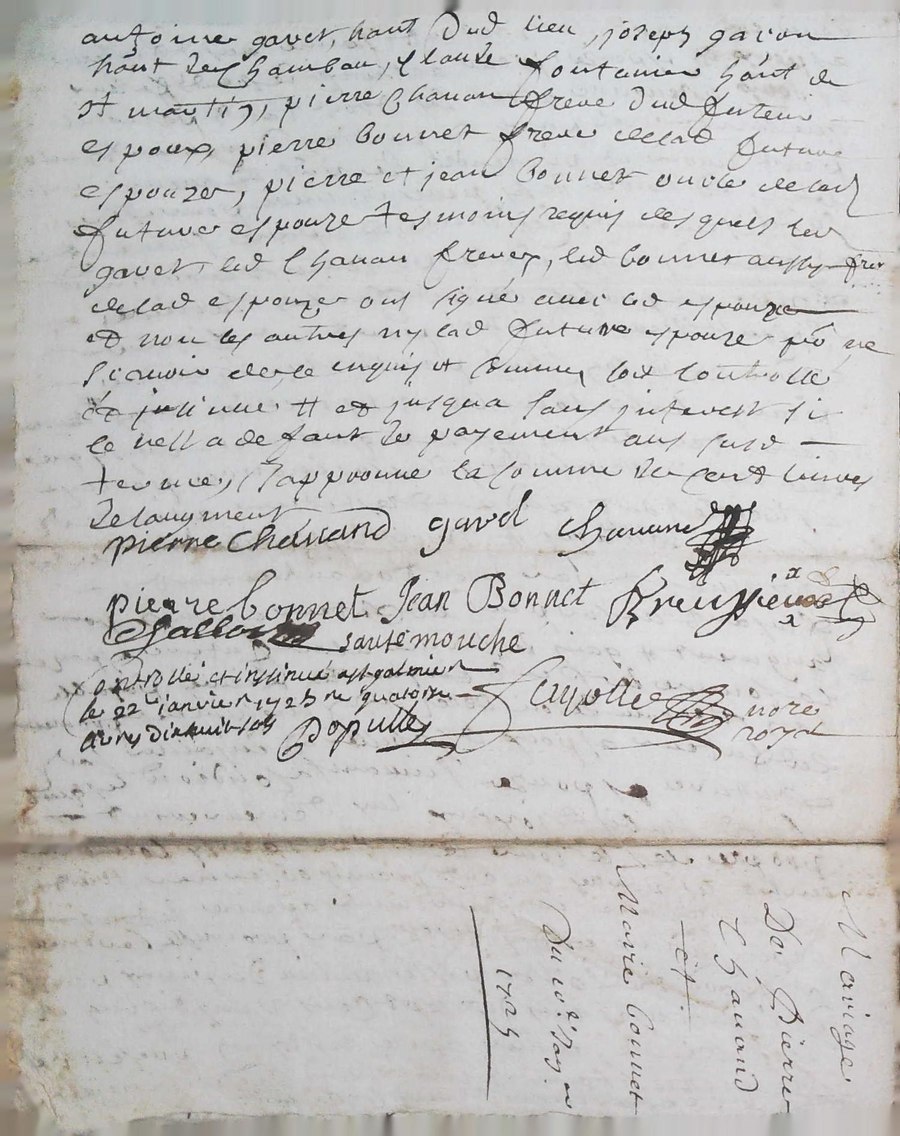 antoine gavet, hant dud lieu, joseph gacon
hant de Chambau, Claude fontanier hant de
st martin, pierre Chanan frere dud futeur
espoux, pierre bonnet frere delad future
espouze, pierre et jean bonnet oncle delad
future espouze tesmoins requis desquels led
gavet, led Chanan freres, led bonnet aussy frer
delad espouze ont signé avec led espoux
et non les autres ny lad future espouze po ne
scavoir de ce enquis et sommes soit controllé
et jusqua sans interest si
ce nest a defaut de payement aus susd
termes, approuve la somme de cent livres
de laugment
pierre Chanand gavet Chanand
pierre bonnet Jean Bonnet
sautemouche
Controllé et insinué a st galmier
le 22e janvier 1725 re quatorse
livres dixhuit sols
Populle
Fayolle nore royal
Mariage
De Pierre
Chanand
et
Marie bonnet
Du 10e
1725